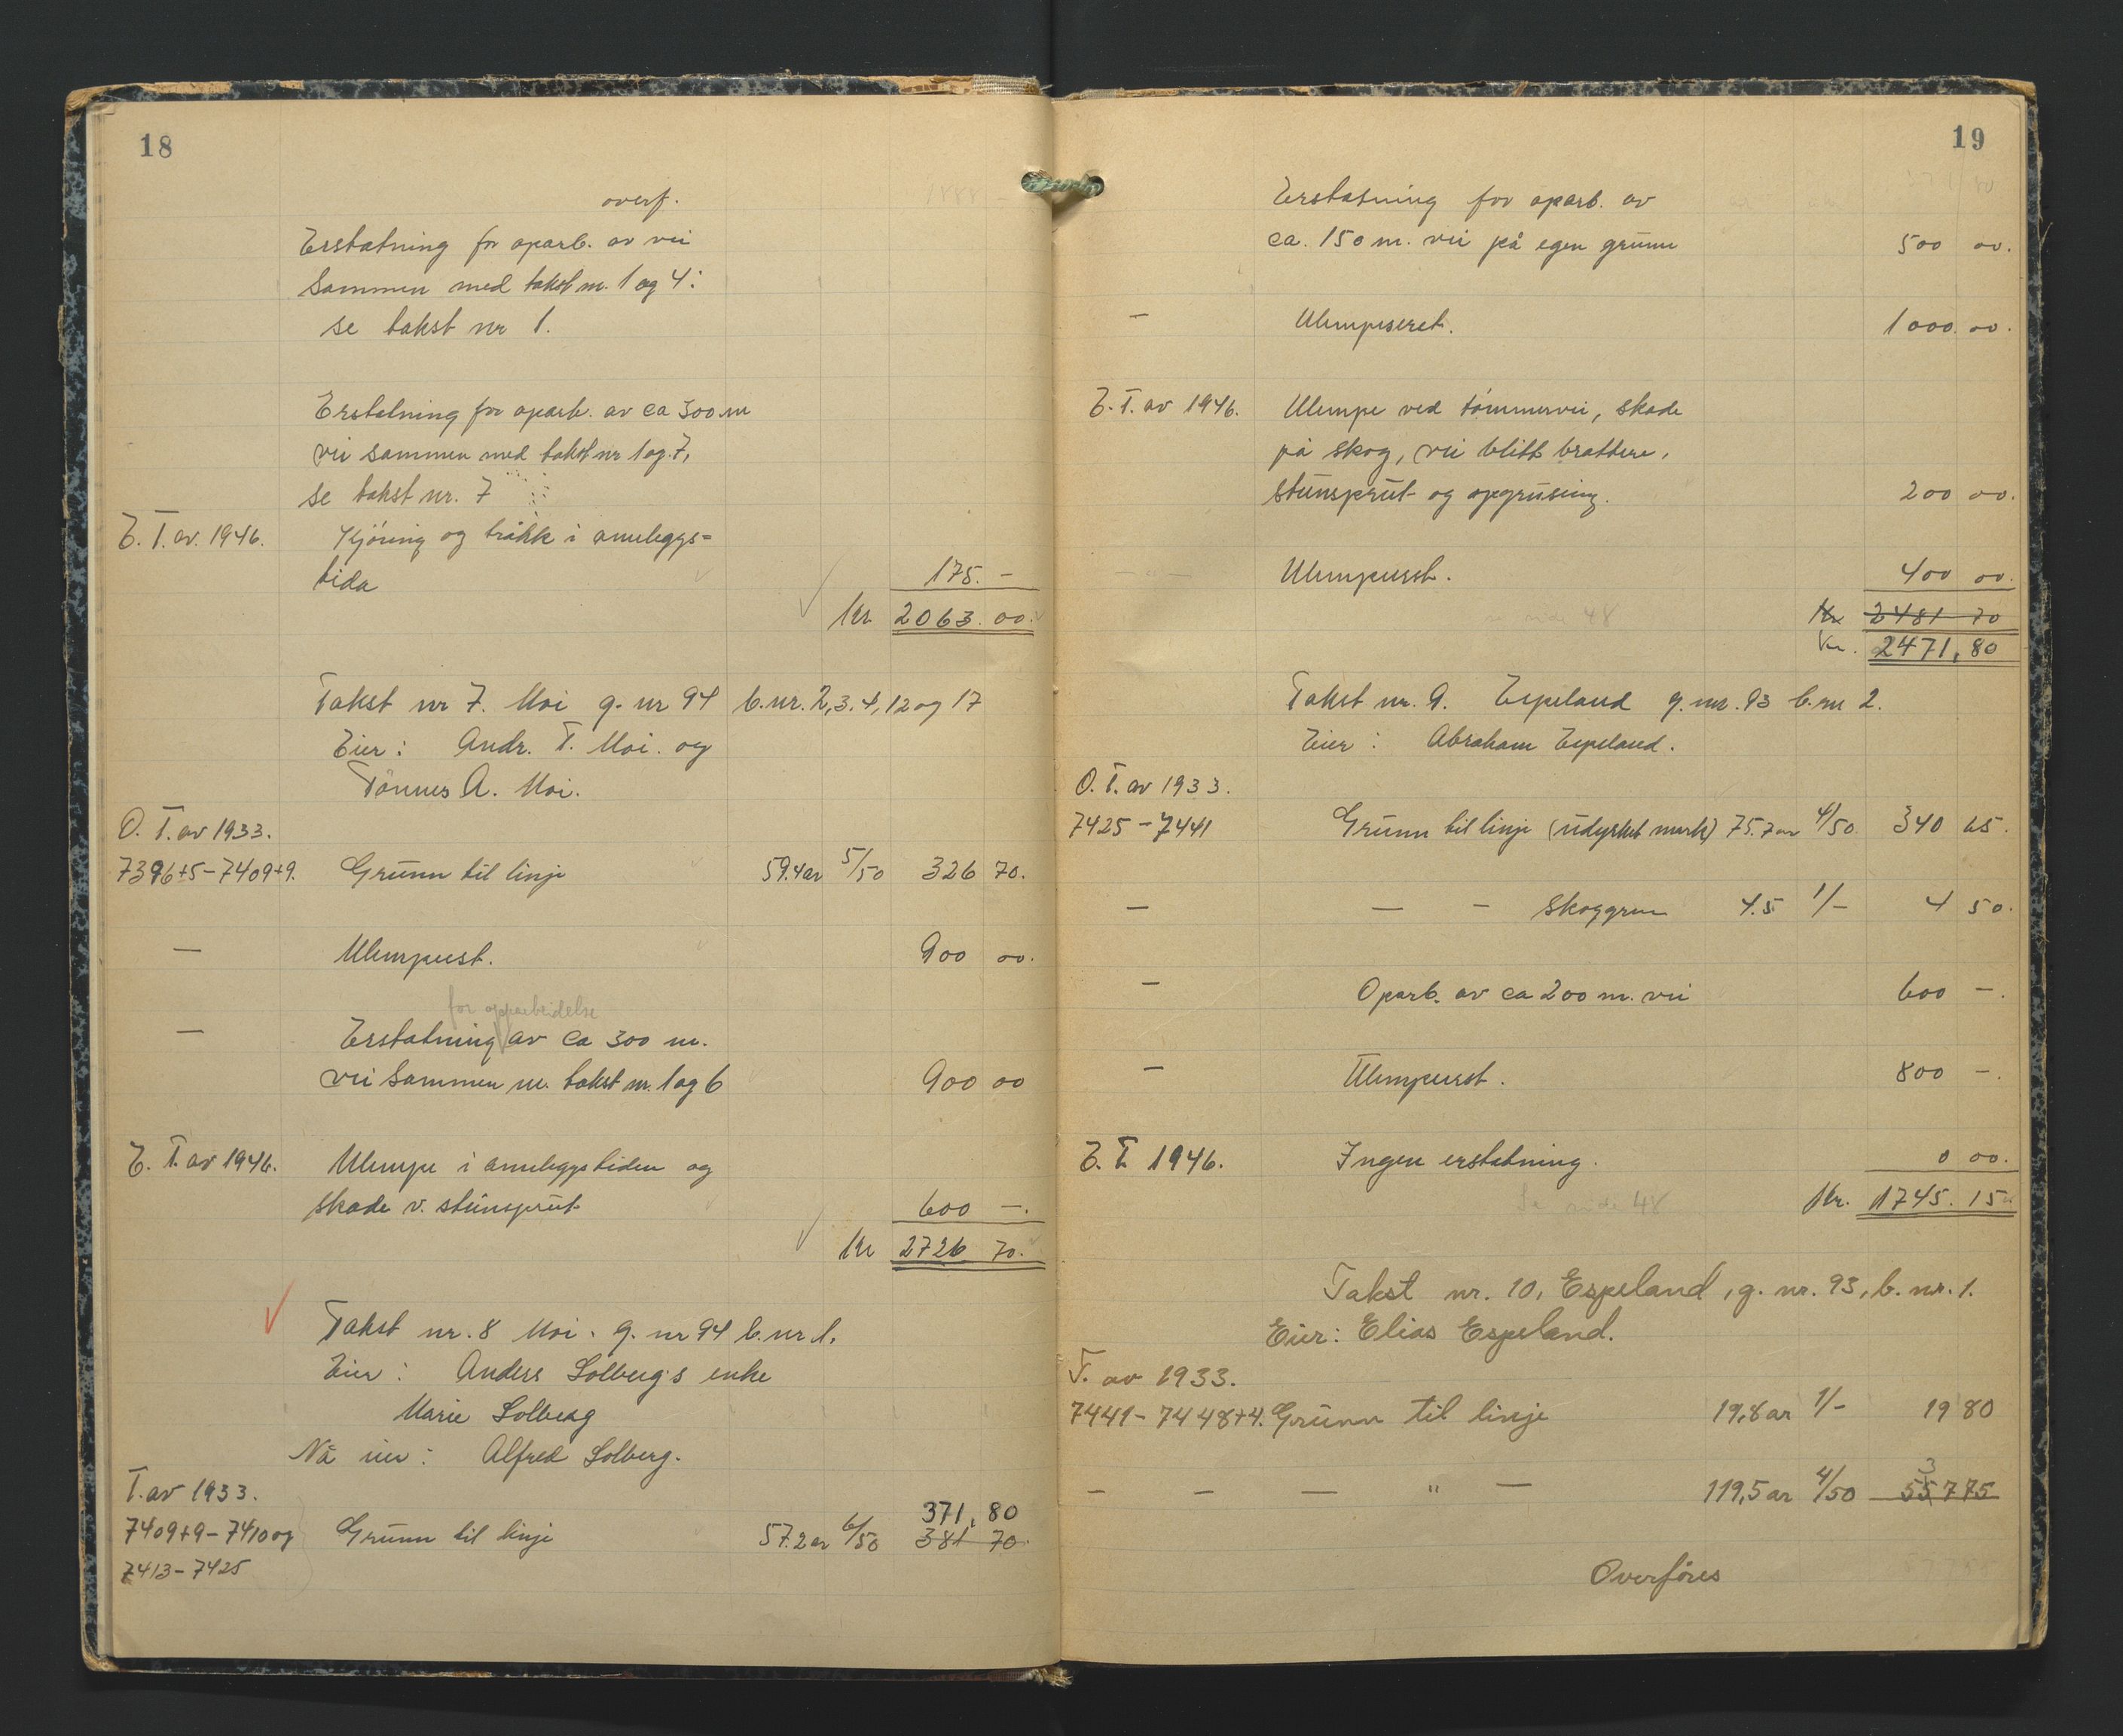 18
overf. 1888 -
Erstatning for oparb. av vei
sammen med takst nr. 1 og 4:
se takst nr 1.
Erstatning for oparb. av ca 300 m
vei sammen med takst nr 1 og 7,
se takst nr. 7
E. T. av. 1946. Kjöring og tråkk i anleggs=
tida 175. -
Kr 2063. 00.
Takst nr 7. Moi g. nr 94 b.nr. 2, 3, 4, 12 og 17
Eier: Andr. T. Moi. og
Tönnes A. Moi.
O. T. av 1933.
7396+5-7409+9. Grunn til linje 59.4 ar 5/50 326 70.
— Ulempeest. 900 00.
for opparbeidelse
— Erstatning av ca 300 m.
vei sammen m. takst nr. 1 og 6 900 00
E. T. av 1946. Ulempe i anleggstiden og
skade v. steinsprut 600 -.
Kr 2726 70.
Takst nr. 8 Moi. g. nr 94 b. nr 1.
Eier: Anders Solberg's enke
Marie Solberg
Nå eier: Alfred Solberg.
T. av 1933.
371,80
7409+9-7410 og Grunn til linje 57.2 ar 6/50 381 70.
7413-7425
19
Erstatning for oparb. av
ca. 150 m. vei på egen grunn 500 00.
— Ulempeserst. 1000. 00.
E. T. av 1946. Ulempe ved tömmervei, skade
på skog, vei blitt brattere,
steinsprut og opgrusing. 200 00.
Ulempeerst. 400 00.
se side 48 Kr 2481 70
Kr. 2471,80
Takst nr. 9. Espeland g.nr. 93 b.nr 2.
Eier: Abraham Espeland.
O. T. av 1933.
7425-7441 Grunn til linje (udyrket mark) 75.7 ar 4/50 340 65.
— — - skoggrun 4.5 1/- 4 50.
— Oparb. av ca 200 m. vei 600 -.
— Ulempeerst. 800 -.
E. T. 1946. Ingen erstatning. 0 00.
Se side 48 Kr. 1745. 15
Takst nr. 10, Espeland, g. nr. 93, b. nr. 1.
Eier: Elias Espeland.
T. av 1933.
7441-7448+4. Grunn til linje 19,8 ar 1/- 19 80
3
— - — " — 119,5 ar 4/50 55775
Overföres